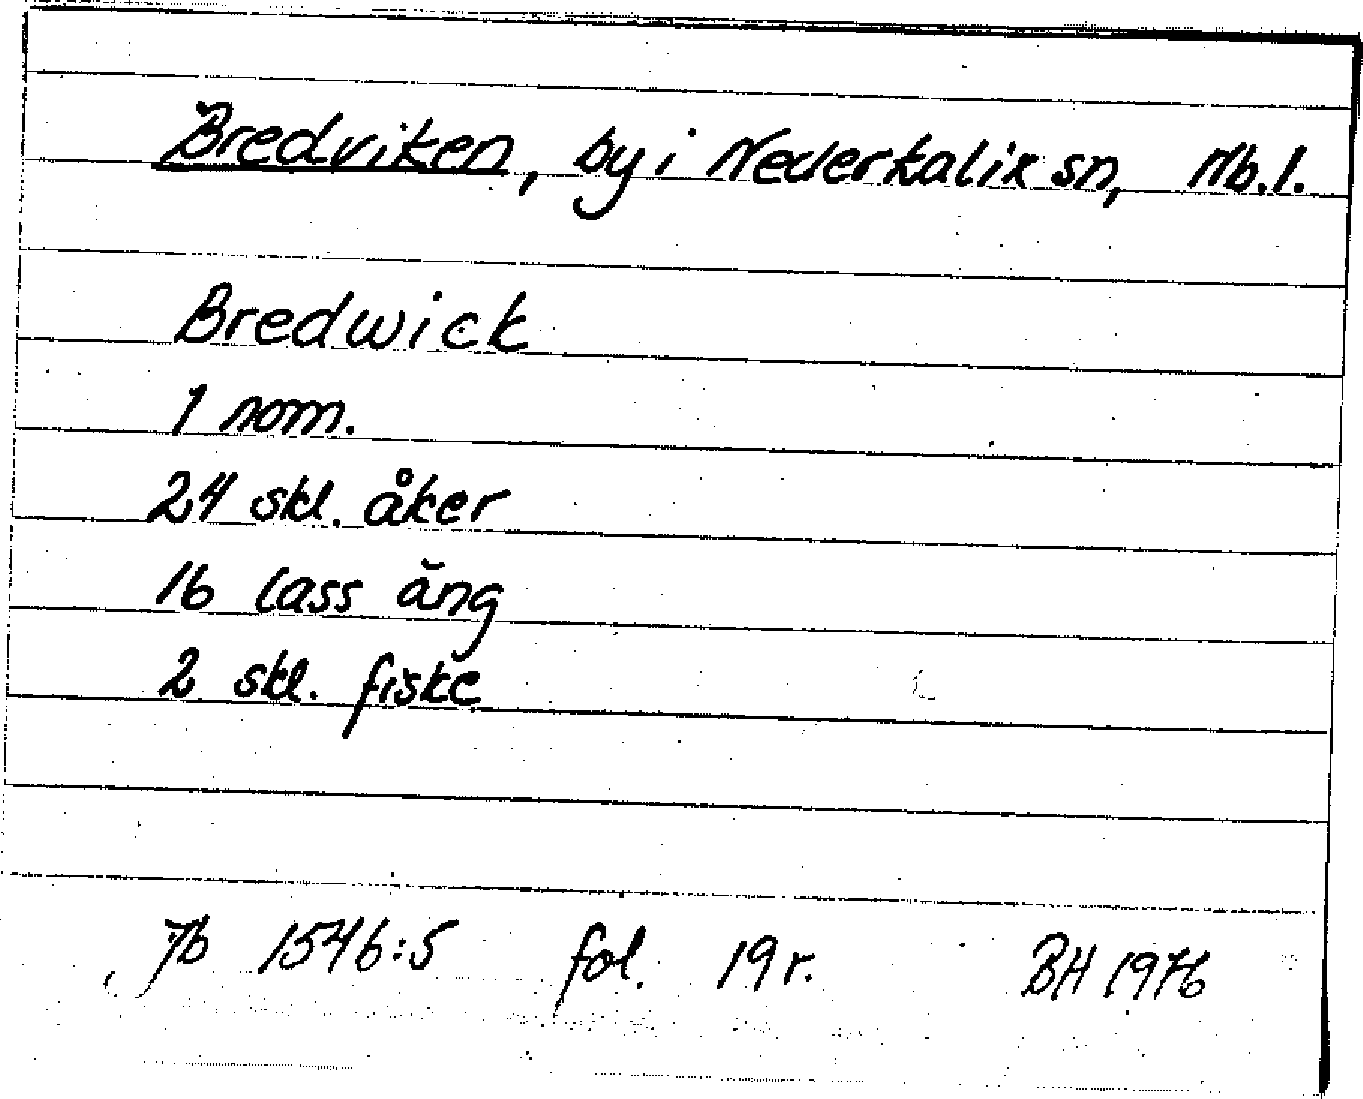 Bredviken, by i Nederkalix sn, Nb.l.
Bredwick
1 nom.
24 skl. åker
16 lass äng
2 skl. fiske
Jb 1546:5 fol. 19 r. BH 1976